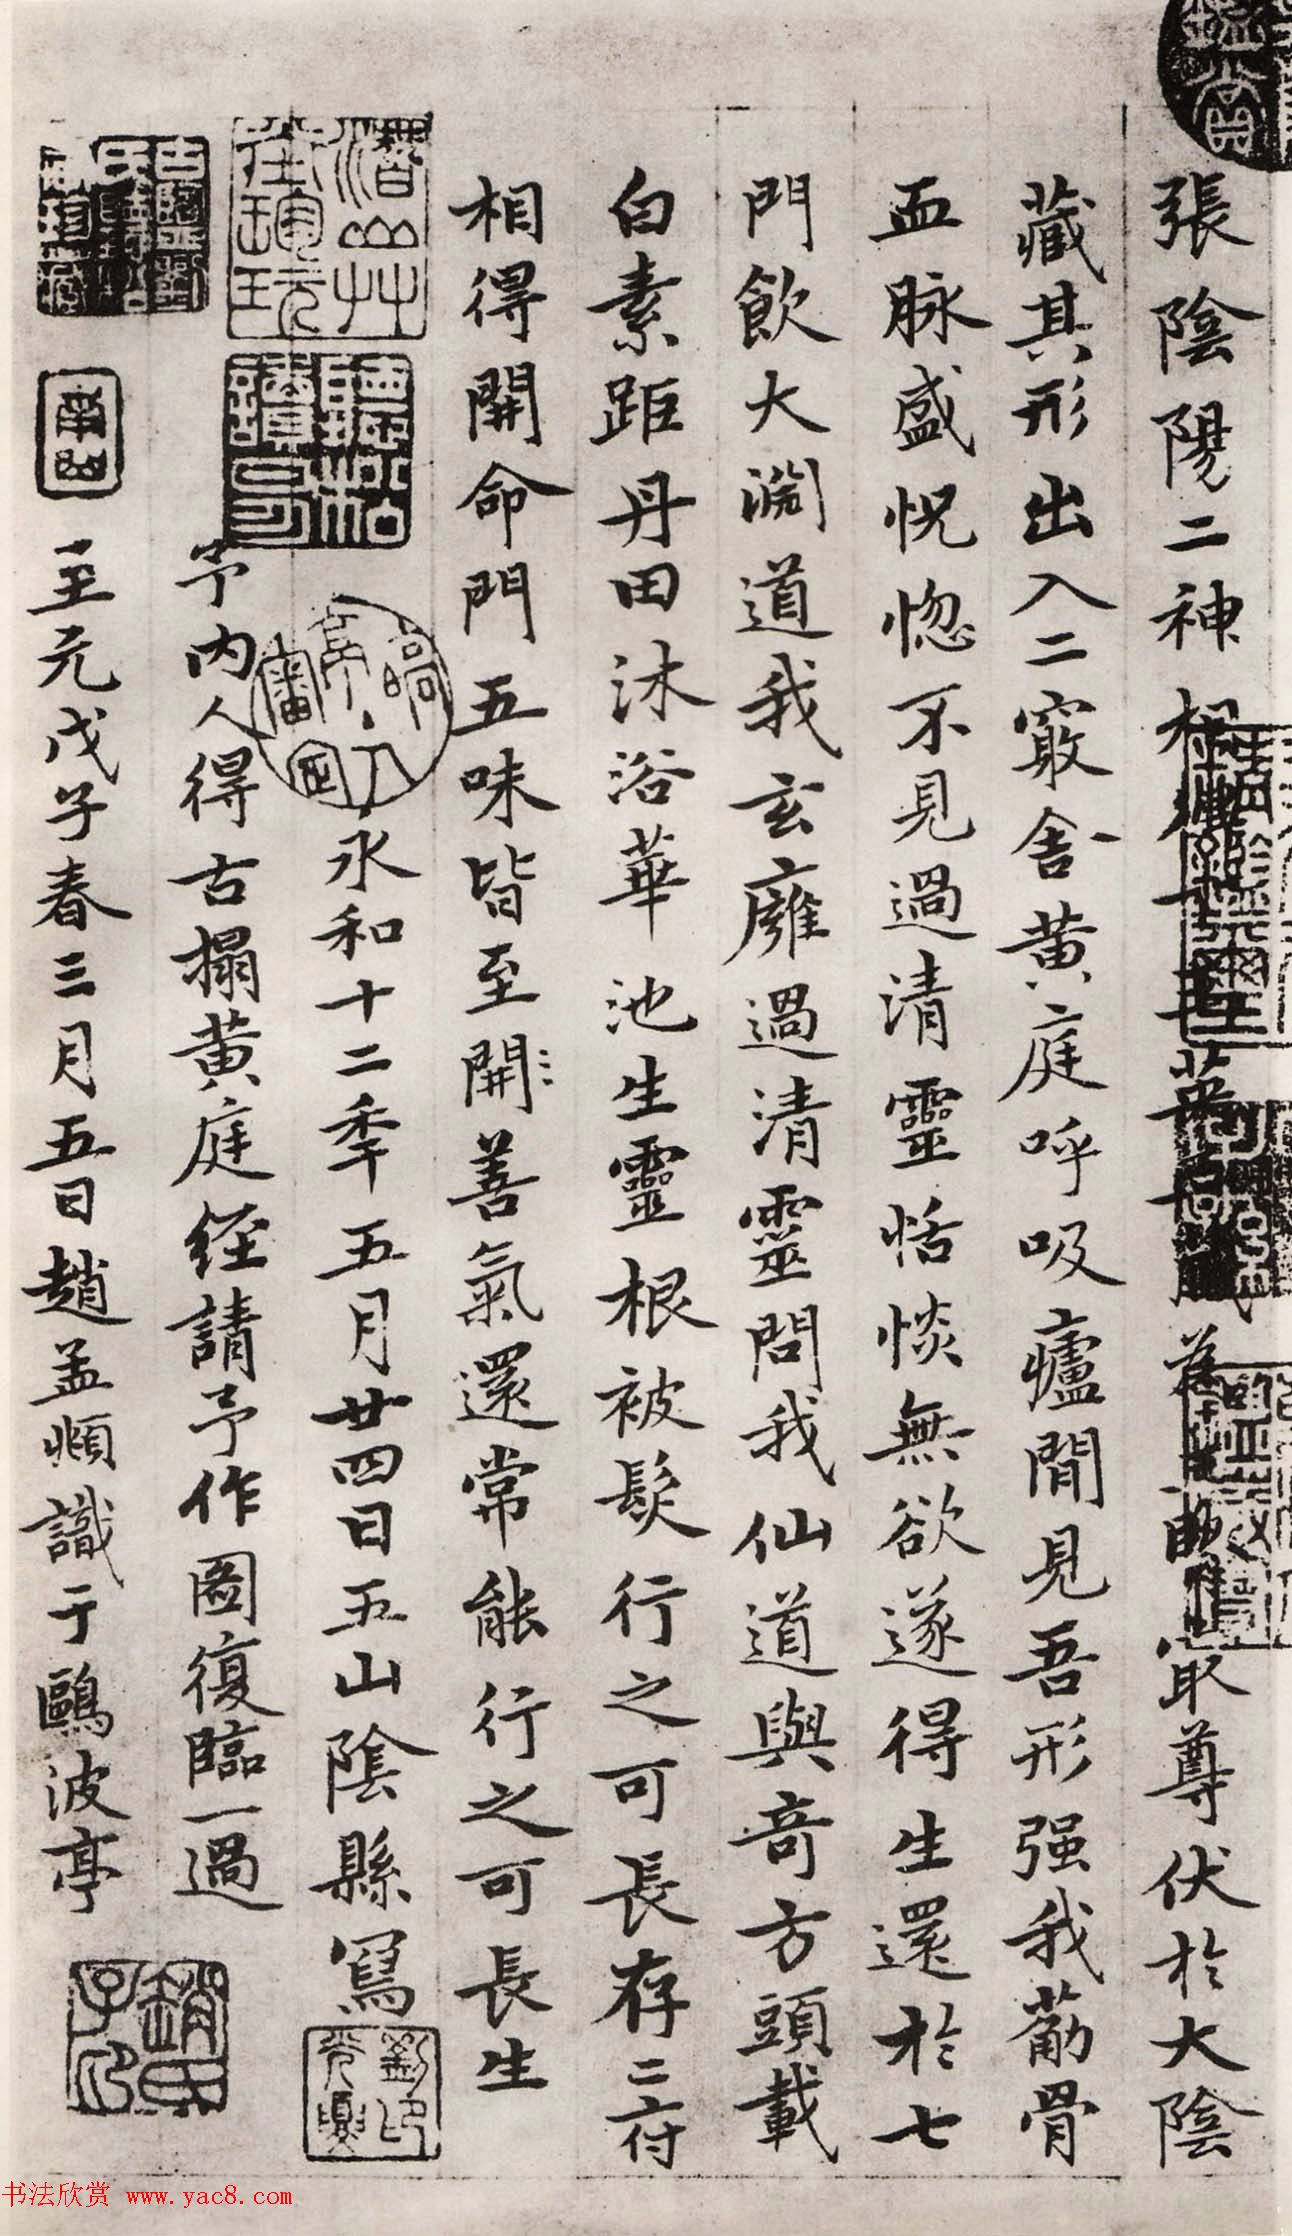 張陰陽二神相得下玉英昆為最尊伏於大陰
藏其形出入二竅舍黃庭呼吸廬閒見吾形强我葋骨
血脉盛怳惚不見過清靈恬惔無欲遂得生還於七
門飲大淵道我玄廱過清靈問我仙道與奇方頭載
白素距丹田沐浴華池生靈根被髮行之可長存二府
相得開命門五味皆至開善氣還常能行之可長生
永和十二季五月廿四日五山陰縣寫
予内人得古搨黃庭經請予作圖復臨一過
至元戊子春三月五日趙孟頫識于鷗波亭
趙氏子印
書法欣赏 www.yac8.com